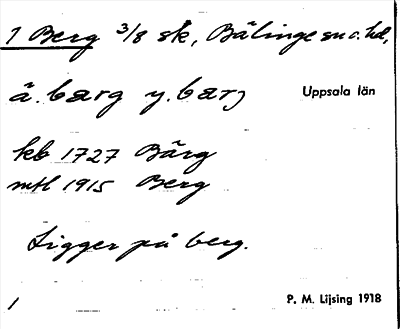 1 Berg 3/8 sk, Bälinge sn o. hd,
ä. barg y. barj
Uppsala län
kb 1727 Bärg
mtl 1915 Berg
Ligger på berg.
1
P. M. Lijsing 1918